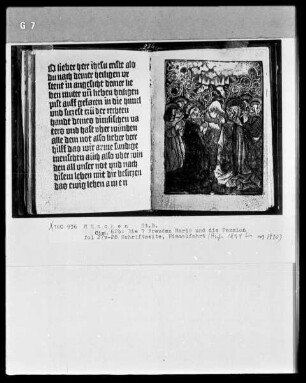 G 7
O lieber herr ihesu criste als
du nach deiner heiligen vr
steent in angesicht deiner lie
ben muter vnd deinen heiligen
pist auff gefaren in die himel
vnd sitzest zu der rechten
hande deines himlischen va
ters vnd hast vber wunden
alle dein not also lieber herr
hilff das wir arme sundige
menschen auch also vber win
den all vnser not vnd nach
disem leben mit dir besitzen
das ewig leben a m e n
München St.B.
Die 7 Freuden Mariä und die Passion
Schriftseite, Himmelfahrt